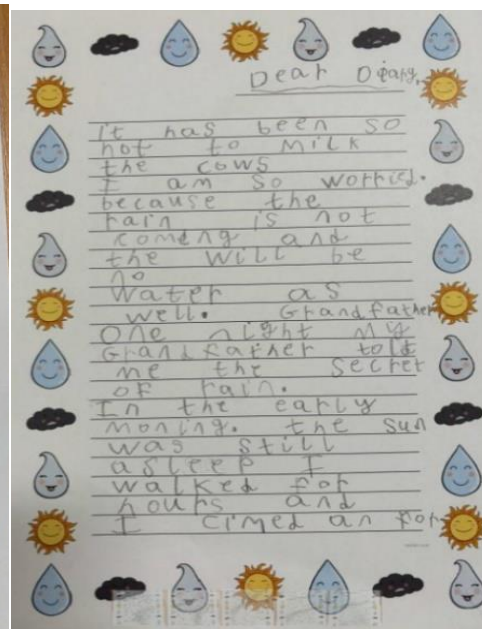 Dear Diary,
it has been so
hot to milk
the cows
I am so worried.
because the
rain is not
comeng and
the will be
no
water as
well. Grandfather
One night my
Grandfather told
me the secret
of rain.
In the early
moning. the sun
was still
asleep I
walked for
hours and
I cimed an for